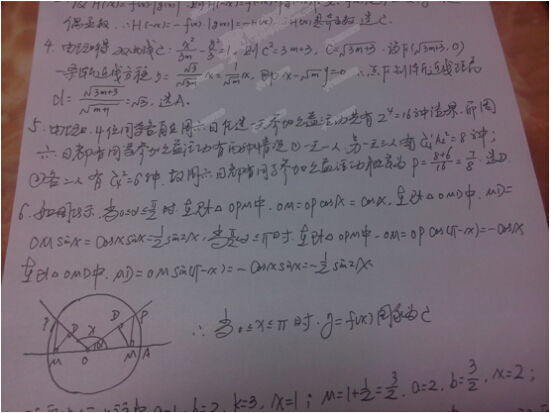 偶函数, ∴H(-x)= -f(x)·|g(x)| = -H(x) ∴H(x)是奇函数 选C.
4. 由已知得 双曲线C: x²/3m - y²/3 = 1, 则 c²=3m+3, c=√3m+3. 设F(√3m+3, 0)
一条渐近线方程 y= √3/√3m x = 1/√m x, 即 x-√m y=0 ∴点F到渐近线距离
d= √3m+3/√m+1 = √3, 选A.
5. 由已知, 4位同学各自在周六、日任选一天参加公益活动共有 2⁴=16种结果. 而周
六、日都有同学参加公益活动有两种情况 ①一天一人 另一天三人有 C¼A²₂=8种;
②各二人 有 C²₄=6种. 故周六、日都有同学参加公益活动概率为 P= 8+6/16 = 7/8. 选D
6. 如图所示, 当0≤x≤π/2时. 在Rt△OPM中. OM=OPcosx = cosx, 在Rt△OMD中. MD=
OMsinx=cosxsinx=½sin2x, 当π/2<x≤π时. 在Rt△OPM中. OM=OPcos(π-x)=-cosx
在Rt△OMD中. MD=OMsin(π-x)=-cosxsinx=-½sin2x.
∴ 当0≤x≤π时. y=f(x)图象为C
P D x D P
M O M A
b=2, k=3, x=1; M=1+½=3/2, a=2, b=3/2, x=2;